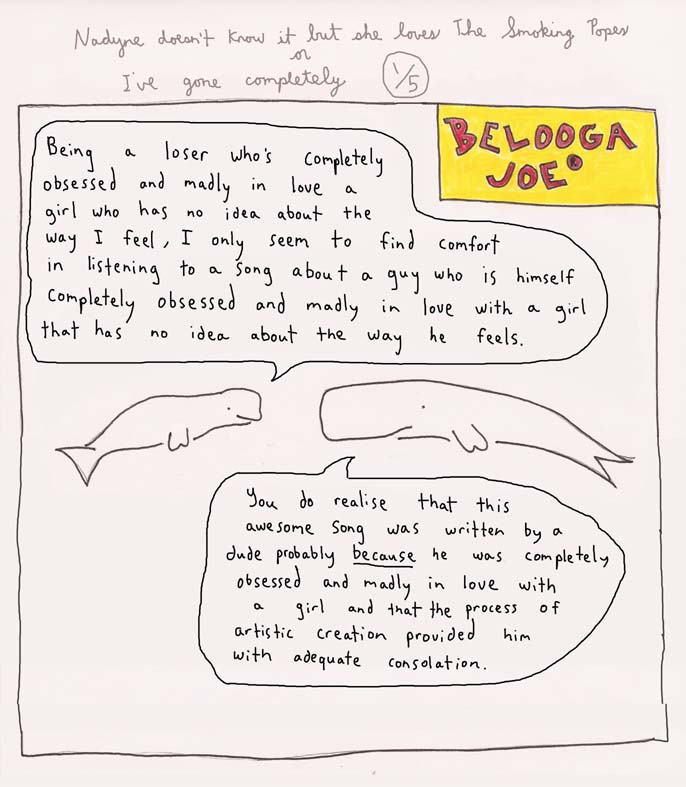 Nadyne doesn't know it but she loves The Smoking Popes
or
I've gone completely 1/5
BELOOGA
JOE®
Being a loser who's completely
obsessed and madly in love a
girl who has no idea about the
way I feel, I only seem to find comfort
in listening to a song about a guy who is himself
completely obsessed and madly in love with a girl
that has no idea about the way he feels.
You do realise that this
awesome song was written by a
dude probably because he was completely
obsessed and madly in love with
a girl and that the process of
artistic creation provided him
with adequate consolation.